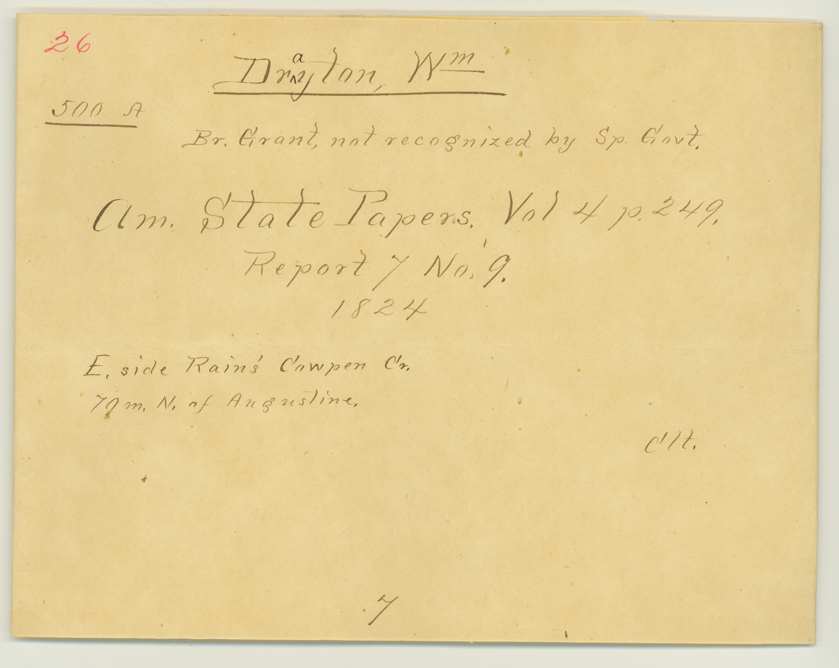 26
Drayton, Wm
500 A
Br. Grant, not recognized by Sp. Govt.
Am. State Papers. Vol 4 p. 249.
Report 7 No. 9.
1824
E. side Rain's Cowpen Cr.
70 m. N. of Augustine.
Clt.
7